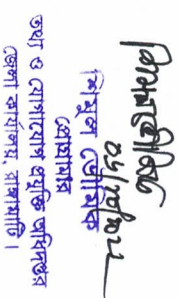 মিথুন ভৌমিক
প্রোগ্রামার
তথ্য ও যোগাযোগ প্রযুক্তি অধিদপ্তর
জেলা কার্যালয়, রাঙ্গামাটি।